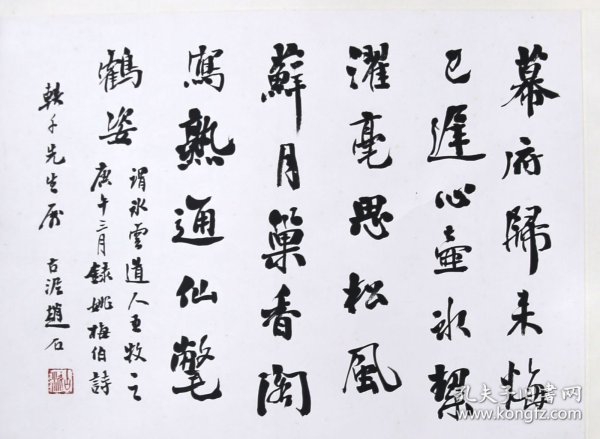 幕府歸来悔
已遲心壺冰絜
濯毫思松風
蘚月巢香閣
寫熟通仙氅
鶴姿
謂冰雲道人王牧之
庚午三月錄姚梅伯詩
軼千先生屬
古泥趙石
孔夫子旧书网
www.kongfz.com